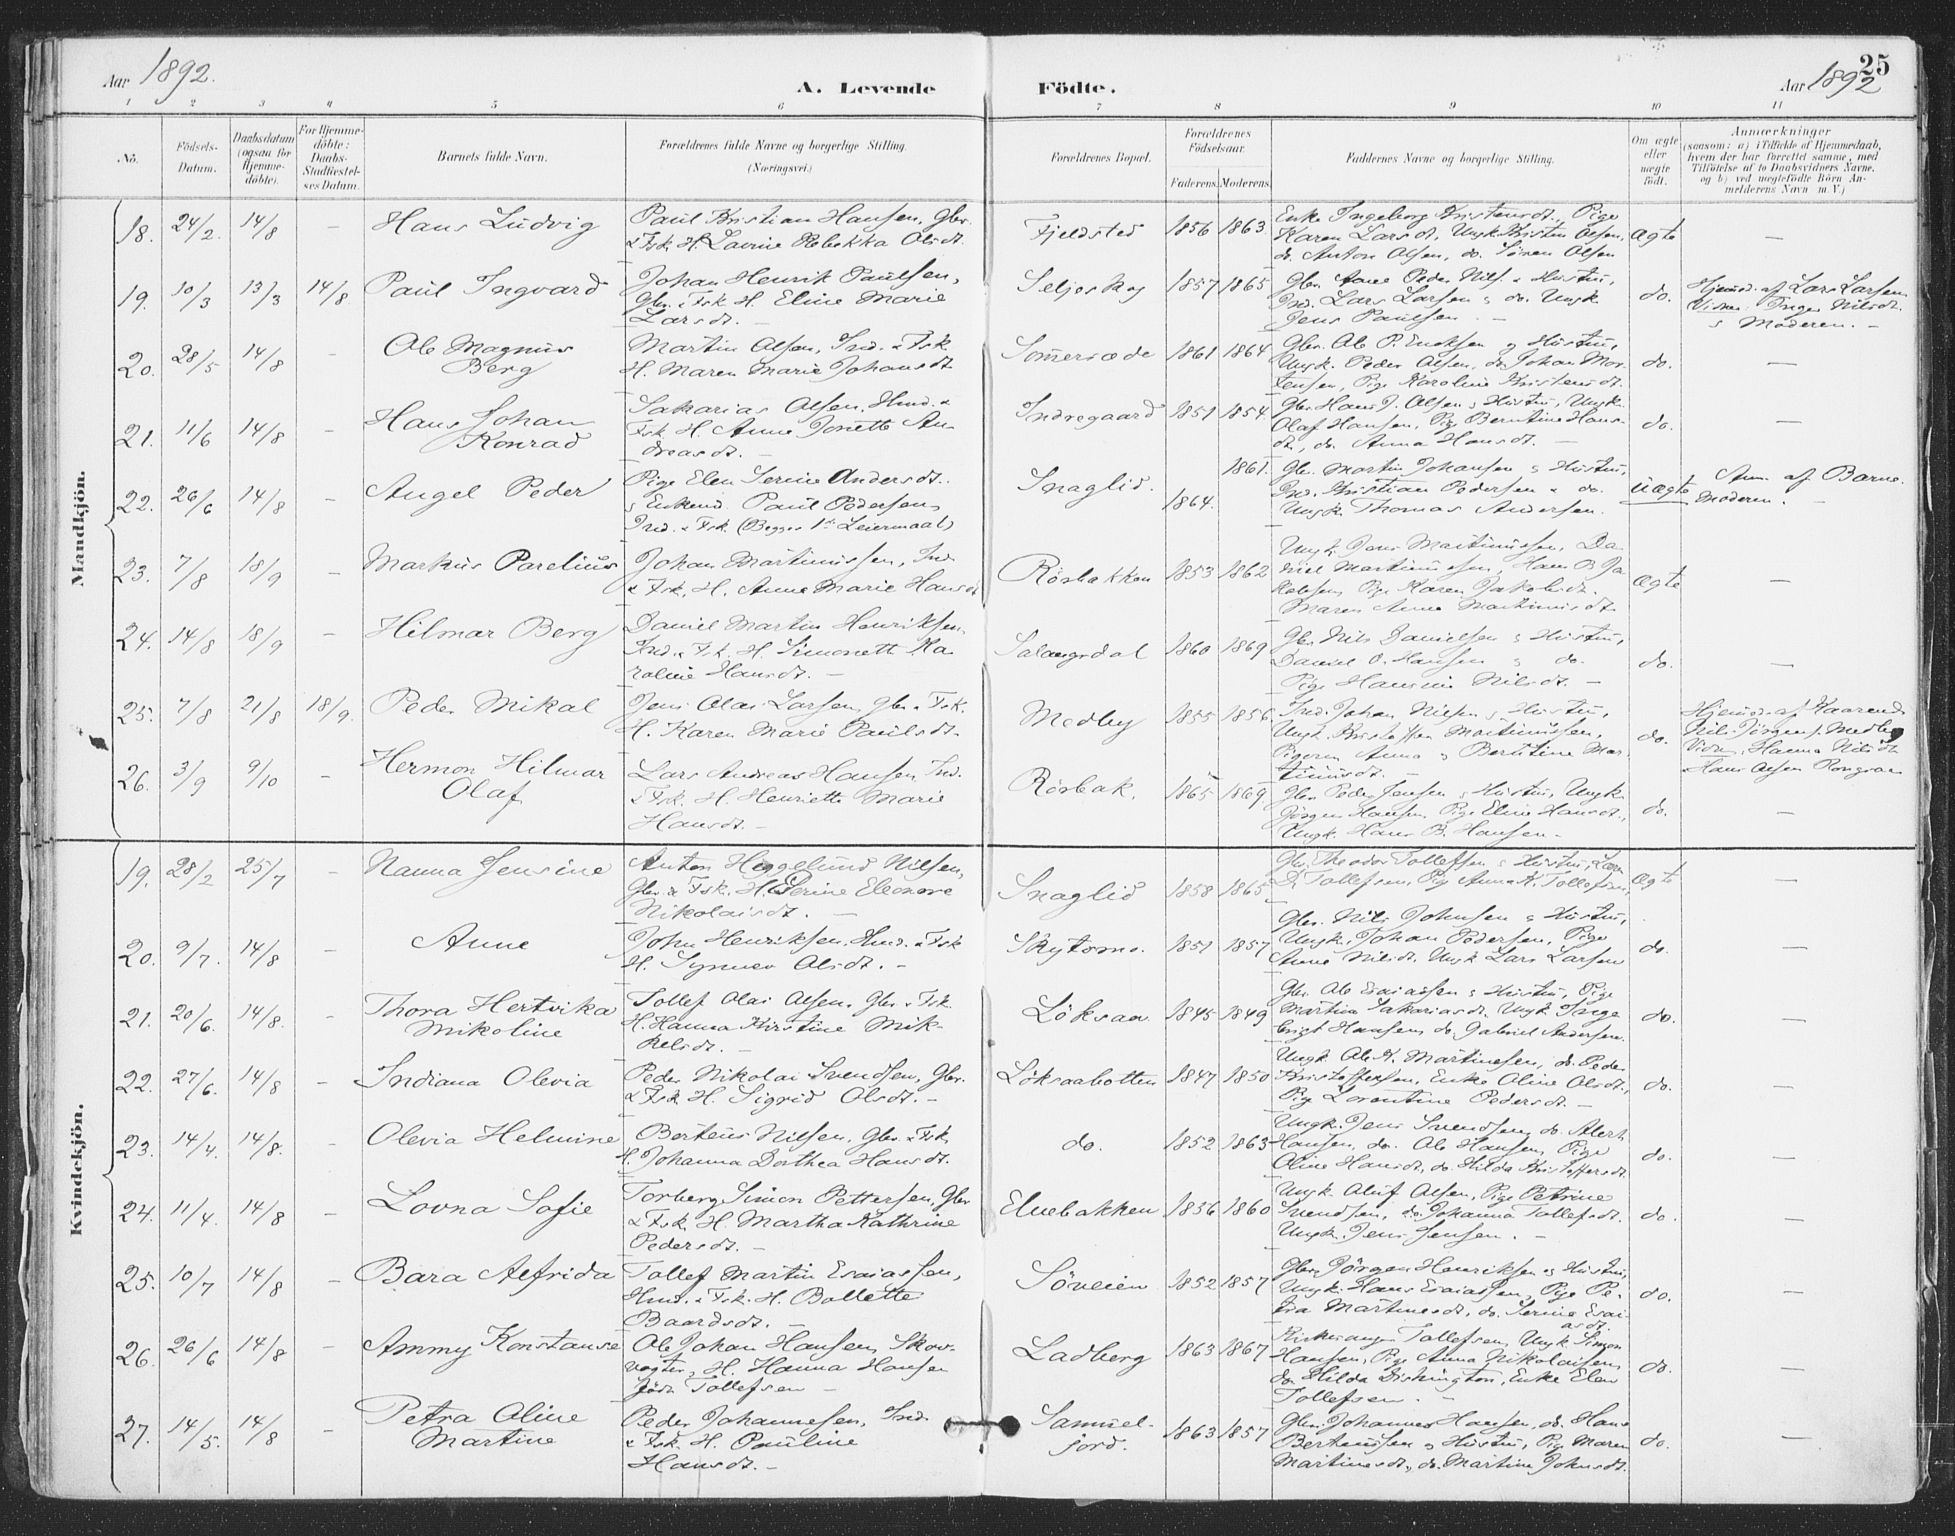 Aar 1892.
A. Levende
Födte.
Aar 1892
25
1 2 3 4 5 6 7 8 9 10 11
No.
Födsels-Datum.
Daabsdatum (ogsaa for Hjemme-döbte).
For Hjemme-döbte: Daabs-Stadfæstel-ses Datum.
Barnets fulde Navn.
Forældrenes fulde Navne og borgerlige Stilling. (Næringsvei.)
Forældrenes Bopæl.
Forældrenes Födselsaar.
Faderens. Moderens.
Faddernes Navne og borgerlige Stilling.
Om ægte eller uægte födt.
Anmærkninger
(saasom: a) i Tilfælde af Hjemmedaab,
hvem der har forrettet samme, med
Tilföielse af to Daabsvidners Navne.
og b) ved uægtefödte Börn An-
melderens Navn m. V.)
Mandkjön.
18. 24/2 14/8 - Hans Ludvig
Paul Kristian Hansen, Gbr.
& Fsk. H. Lavrine Rebekka Olsdt.
Fjeldsted 1856 1863
Enke Ingeborg Kristensdt., Pige
Karen Larsdt., Ungk. Kristen Olsen,
do. Anton Olsen, do. Sören Olsen
Ægte -
19. 10/3 13/3 14/8 Paul Ingvard
Johan Henrik Paulsen,
Gbr. & Fsk. H. Eline Marie
Larsdt. -
Seljeskog 1857 1865
Ind. Lars Larsen & do. Ungk
Jens Paulsen. -
do.
Hjemd. af Lars Larsen
Vidner. Inger Nilsdt.
& Moderen. -
20. 28/5 14/8 - Ole Magnus
Berg
Martin Olsen, Ind. & Fsk
H. Maren Marie Johansdt
Sommersæde 1861 1864
Gbr. Ole P. Enoksen og Hustru,
Ungk. Peder Olsen, do. Johan Mor-
tensen, Pige Karoline Kristensdt.
do. -
21. 11/6 14/8 - Hans Johan
Konrad
Sakarias Olsen, Hmd. &
Fsk. H. Anne Jonette An-
dreasdt. -
Indregaard 1851 1854
Gbr. Hans J. Olsen & Hustru, Ungk.
Olaf Hansen, Pige Berntine Hans-
dt., do. Anna Hansdt. -
do. -
22. 26/6 14/8 - Angel Peder
Pige Elen Serine Andersdt.
& Enkemd. Paul Pedersen,
Ind. & Fsk. (Begges 1ste Leiermaal)
Snaglid. 1864. 1861.
Gbr. Martin Johansen & Hustru,
Ind. Kristian Pedersen & do.
Ungk. Thomas Andersen.
Uægte
Anm. af Barne-
moderen. -
23. 7/8 18/9 - Markus Parelius
Johan Martinussen, Ind.
& Fsk. H. Anne Marie Hansdt
Rörbakken 1853 1862
Ungk. Jens Martinussen, Da-
niel Martinussen, Hans B. Ja-
kobsen, Pige Karen Jakobsdt.
Maren Anna Martinusdt.
Ægte -
24. 14/8 18/9 - Hilmar Berg
Daniel Martin Henriksen,
Ind. & Fsk. H. Simonette Ka-
roline Hansdt. -
Salangsdal 1860 1869
Gbr. Nils Danielsen & Hustru,
Daniel O. Hansen & do.
Pige Hansine Nilsdt. -
do. -
25. 7/8 21/8 18/9. Peder Mikal
Jens Olai Larsen, Gbr. & Fsk.
H. Karen Marie Paulsdt.
Medby 1855 1856
Ind. Johan Nilsen & Hustru,
Ungk. Kristoffer Martinussen,
Pigerne Anna & Berntine Mar-
tinusdt. -
do.
Hans Olsen
26. 3/9 9/10 - Hermon Hilmar
Olaf
Lars Andreas Hansen, Ind.
& Fsk. H. Henriette Marie
Hansdt. -
Rörbak. 1865 1869
Gbr. Peder Jensen & Hustru, Ungk.
Jörgen Hansen, Pige Eline Hansdt.,
Ungk. Hans B. Hansen. -
do. -
Kvindekjön.
19. 28/2 25/7 - Nanna Jensine
Anton Heggelund Nilsen,
Gbr. & Fsk. H. Serine Eleonore
Nikolaisdt. -
Snaglid 1858 1865
Gbr. Theodor Tollefsen & Hustru,
D. Tollefsen, Pige Anna K. Tollefsen,
Ægte -
20. 9/7. 14/8 - Anne
John Henriksen, Hmd. & Fsk
H. Synnev Olsdt. -
Skytomo. 1851 1857
Gbr. Nils Johnsen & Hustru,
Ungk. Johan Pedersen, Pige
Anne Nilsdt. Ungk Lars Larsen
do. -
21. 20/6. 14/8. - Thora Hertvika
Mikoline
Tollef Olai Olsen, Gbr. & Fsk.
H. Hanna Kirstine Mik-
kelsdt. -
Löksaa 1845 1849
Gbr. Ole Esaiassen & Hustru, Pige
Martina Sakariasdt. Ungk Inge-
brigt Hansen, do. Gabriel Andersen.
do. -
22. 27/6. 14/8 - Indiana Olevia
Peder Nikolai Svendsen, Gbr.
& Fsk. H. Sigrid Olsdt. -
Löksaabotten 1847 1850
Ungk. Ole K. Martinesen, do. Peder
Kristoffersen, Enke Oline Olsdt.,
Pige Lorentine Pedersdt. -
do. -
23. 14/4. 14/8. - Olevia Helmine
Berteus Nilsen, Gbr. & Fsk,
H. Johanna Dorthea Hansdt.
do. 1852 1863
Ungk. Jens Svendsen, do. Alert
Hansen, do. Ole Hansen, Pige
Oline Hansdt, do. Hilda Kristoffersdt.
do. -
24. 11/4. 14/8 - Lovna Sofie
Torberg Simon Pettersen, Gbr
& Fsk. H. Martha Kathrine
Pedersdt. -
Elvebakken 1856 1860
Ungk. Oluf Olsen, Pige Petrine
Svendsen, do. Johanna Tollefsdt.
Ungk. Jens Jensen. -
do. -
25. 10/7 14/8 - Bara Alfrida
Tollef Martin Esaiassen,
Hmd. & Fsk. H. Bollette
Baardsdt. -
Söveien 1852 1857
Gbr. Jörgen Henriksen og Hustru,
Ungk. Hans Esaiassen, Pige Pe-
tra Martinesdt, do. Serine Esai-
asdt.
do. -
26. 26/6 14/8 - Ammy Konstanse
Ole Johan Hansen, Skov-
vogter, H. Hanna Hansen
födt Tollefsen -
Ladberg 1863 1867
Kirkesanger Tollefsen, Ungk Simon
Hansen, Pige Anna Nikolaisen,
do Hilda Dishington, Enke Elen
Tollefsen. -
do. -
27. 14/5. 14/8 - Petra Oline
Martine
Peder Johannesen, Ind.
& Fsk. H. Pauline
Hansdt. -
Samuel-
jord. 1863 1857
Gbr. Johannes Hansen, do. Hans
Berteussen og Hustru, Pige Maren
Martinesdt., do. Martine Johnsdt.
do. -